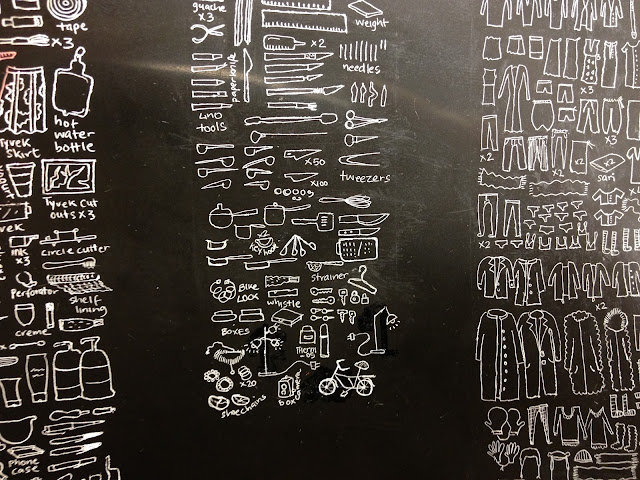 tape
x3
hot
water
bottle
Tyvek
Skirt
Tyvek cut
outs x3
ink
x5
circle cutter
Perforator
shelf
lining
creme
phone
case
guache
x3
paperknife
Lino
tools
x2
weight
needles
x50
x100
tweezers
strainer
Bike
Lock
whistle
Boxes
x20
shoechains
box
x3
x3
x2
x2
x2
sari
x2
x2